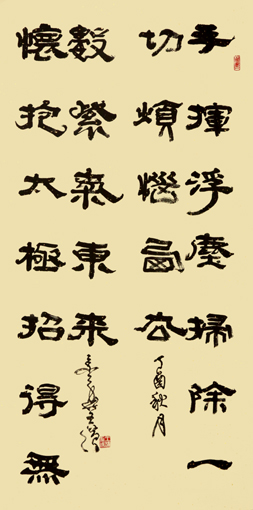 手揮浮塵掃除一
切煩惱西去
丁酉秋月
懷抱太極招得無
數紫氣東來